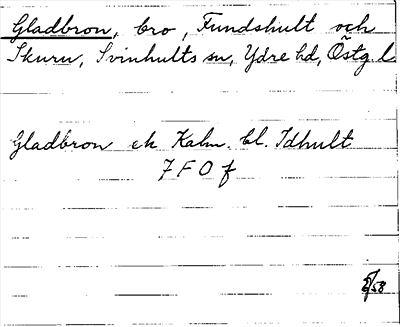 Gladbron, bro, Fundshult och
Skuru, Svinhults sn, Ydre hd, Östg. l.
Gladbron ek Kalm. bl. Idhult
7 F 0 f